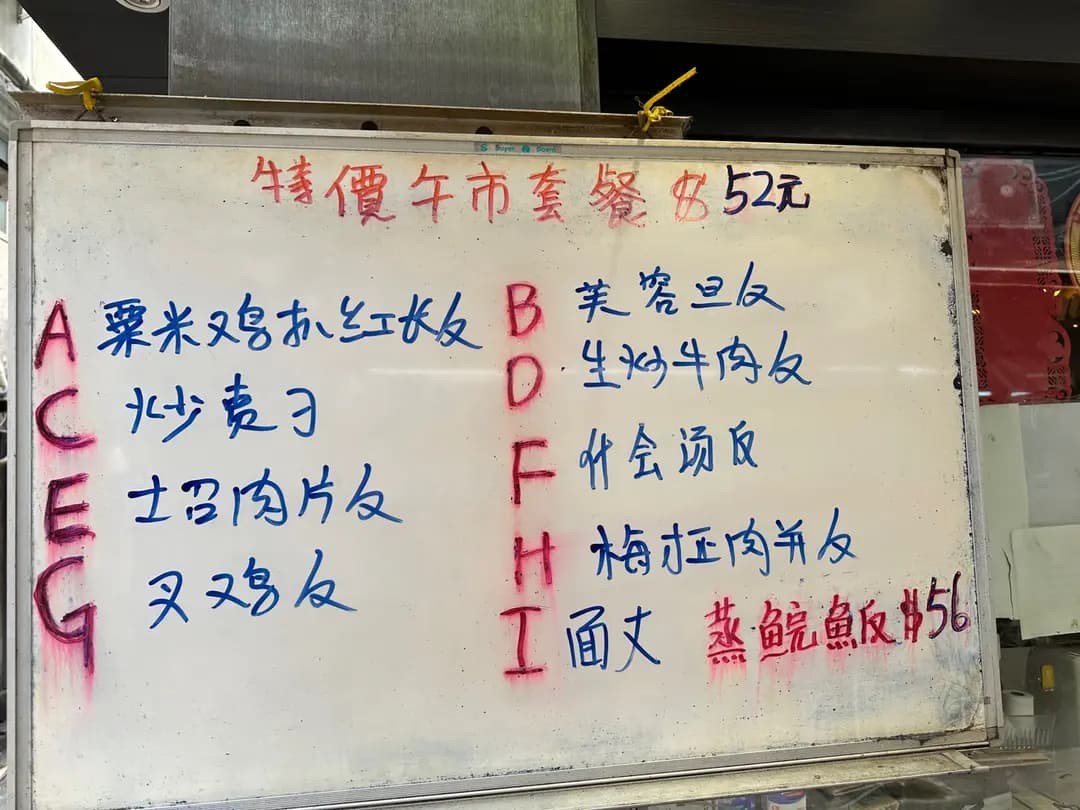 Buyer Board
特價午市套餐 $52元
A 粟米鸡扒红长反
B 芙容旦反
C 炒责刁
D 生炒牛肉反
E 士召肉片反
F 什会汤反
G 叉鸡反
H 梅才正肉并反
I 面丈 蒸鯇魚反 $56